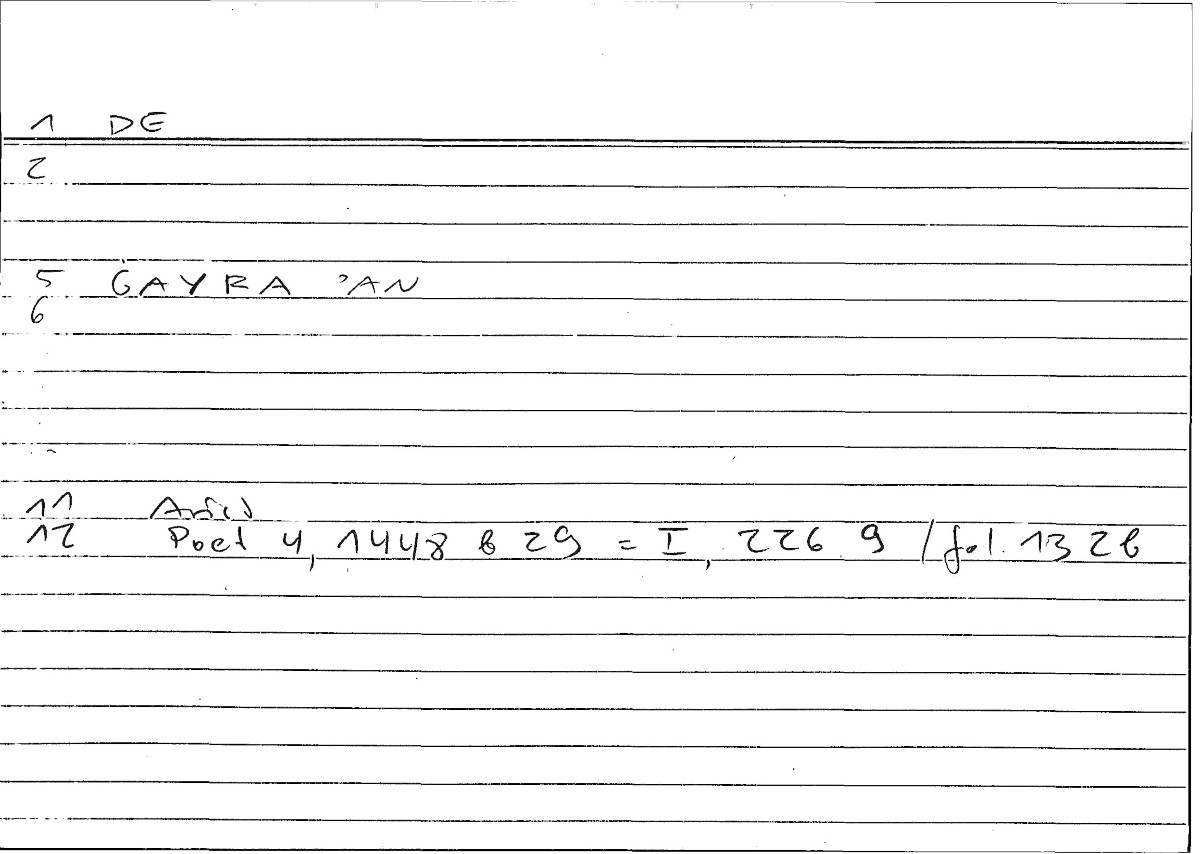 1 DE
2
5 ĠAYRA ʾAN
6
11 Arist
12 Poet 4, 1448 b 29 = I, 226 9 / fol. 132b